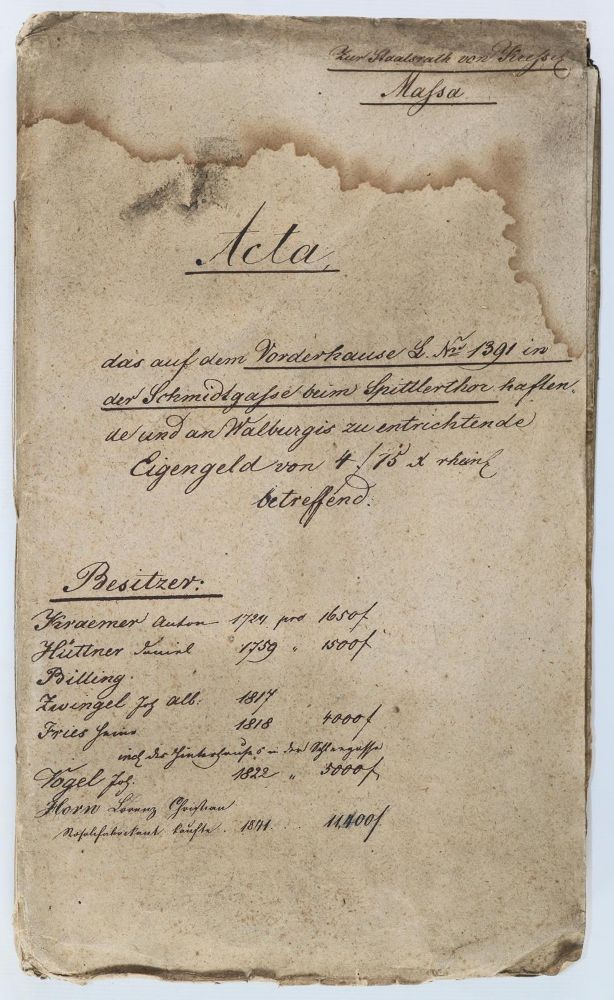 Zur Staatsrath von
Massa
Acta,
das auf dem Vorderhause L. Nro 1391 in
der Schmidtgasse beim Spittlerthor haften-
de und an Walburgis zu entrichtende
Eigengeld von 4 f 15 x rheinl
betreffend.
Besitzer:
Kraemer Anton 1724 pro 1650 f
Hüttner Daniel 1759 " 1500 f
Billing.
Zwingel Joh Alb: 1817
Fries Heinr 1818 4000 f
incl des Hinterhauses in der
Vogel Joh. 1822 " 5000 f
Horn Lorenz Christian
kaufte. 1841. 11,400 f.